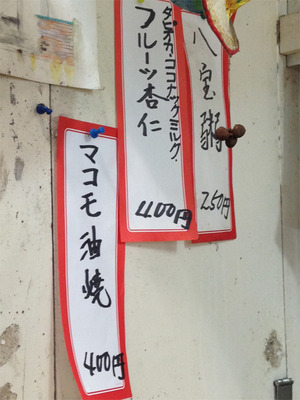 八宝粥
250円
タピオカ・ココナッツミルク
フルーツ杏仁
400円
マコモ油焼
400円